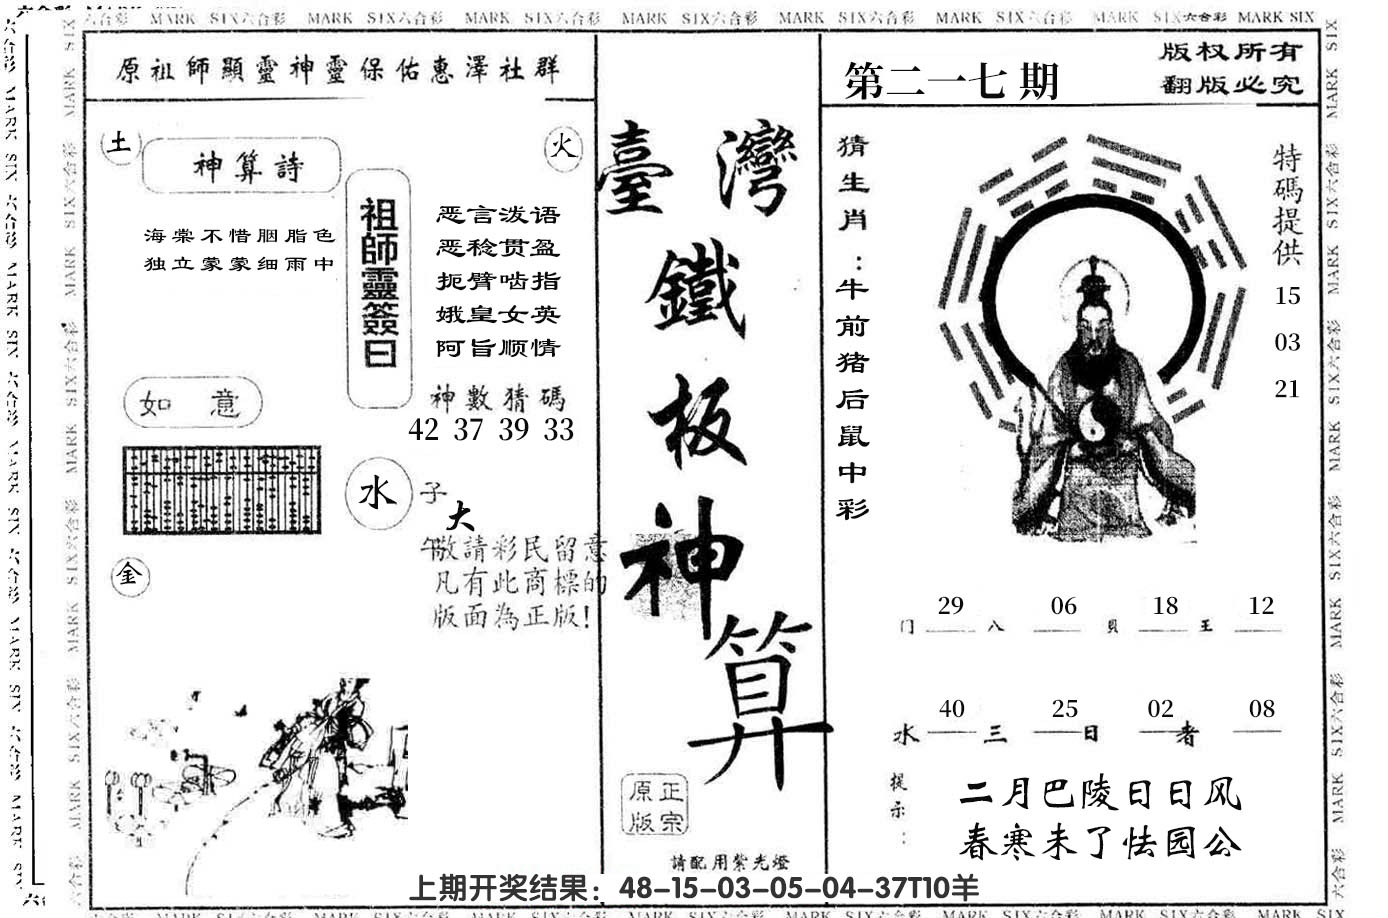 MARK SIX六合彩 MARK SIX六合彩 MARK SIX六合彩 MARK SIX六合彩 MARK SIX六合彩 MARK SIX六合彩 MARK SIX六合彩 MARK SIX
原祖師顯靈神靈保佑惠澤社群
土
火
神算詩
海棠不惜胭脂色
独立蒙蒙细雨中
祖師靈簽曰
恶言泼语
恶稔贯盈
扼臂啮指
娥皇女英
阿旨顺情
如意
神數猜碼
42 37 39 33
水
子
大
午
金
敬請彩民留意
凡有此商標的
版面為正版!
臺灣
鐵
板
神
算
正宗
原版
請配用紫光燈
第二一七期
版权所有
翻版必究
猜生肖:牛前猪后鼠中彩
特碼提供
15
03
21
29 06 18 12
门 八 貝 王
40 25 02 08
水 三 日 者
提示:
二月巴陵日日风
春寒未了怯园公
上期开奖结果：48-15-03-05-04-37T10羊